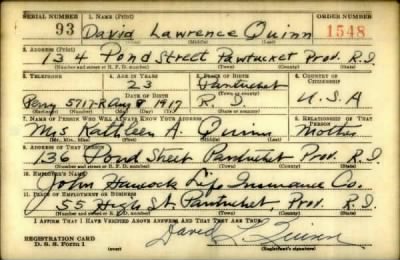 SERIAL NUMBER 1. NAME (Print) ORDER NUMBER
93 David Lawrence Quinn 1548
(First) (Middle) (Last)
2. ADDRESS (Print)
134 Pond Street Pawtucket Prov. R.I.
(Number and street or R. F. D. number) (Town) (County) (State)
3. TELEPHONE 4. AGE IN YEARS 5. PLACE OF BIRTH 6. COUNTRY OF CITIZENSHIP
23 Pawtucket
DATE OF BIRTH (Town or county)
Perry 5717-R Aug 8 1917 R. I. U.S.A
(Exchange) (Number) (Mo.) (Day) (Yr.) (State or country)
7. NAME OF PERSON WHO WILL ALWAYS KNOW YOUR ADDRESS 8. RELATIONSHIP OF THAT PERSON
Mrs Kathleen A. Quinn Mother
(Mr., Mrs., Miss) (First) (Middle) (Last)
9. ADDRESS OF THAT PERSON
136 Pond Street Pawtucket Prov. R.I.
(Number and street or R. F. D. number) (Town) (County) (State)
10. EMPLOYER'S NAME
John Hancock Life Insurance Co.
11. PLACE OF EMPLOYMENT OR BUSINESS
55 High St. Pawtucket, Prov. R.I.
(Number and street or R. F. D. number) (Town) (County) (State)
I AFFIRM THAT I HAVE VERIFIED ABOVE ANSWERS AND THAT THEY ARE TRUE.
REGISTRATION CARD
D. S. S. Form 1 (over) David L. Quinn
(Registrant's signature)